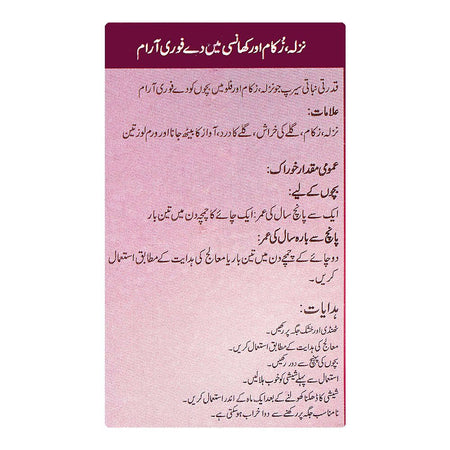 نزلہ، زُکام اور کھانسی میں دے فوری آرام
قدرتی نباتی سیرپ جو نزلہ، زکام اور فلو میں بچوں کو دے فوری آرام
علامات:
نزلہ، زکام، گلے کی خراش، گلے کا درد، آواز کا بیٹھ جانا اور ورم لوزتین
عمومی مقدار خوراک:
بچوں کے لیے:
ایک سے پانچ سال کی عمر: ایک چائے کا چمچہ دن میں تین بار
پانچ سے بارہ سال کی عمر:
دو چائے کے چمچے دن میں تین بار یا معالج کی ہدایت کے مطابق استعمال
کریں۔
ہدایات:
ٹھنڈی اور خشک جگہ پر رکھیں۔
معالج کی ہدایت کے مطابق استعمال کریں۔
بچوں کی پہنچ سے دور رکھیں۔
استعمال سے پہلے شیشی کو خوب ہلالیں۔
شیشی کا ڈھکنا کھولنے کے بعد ایک ماہ کے اندر استعمال کریں۔
نامناسب جگہ پر رکھنے سے دوا خراب ہوسکتی ہے۔